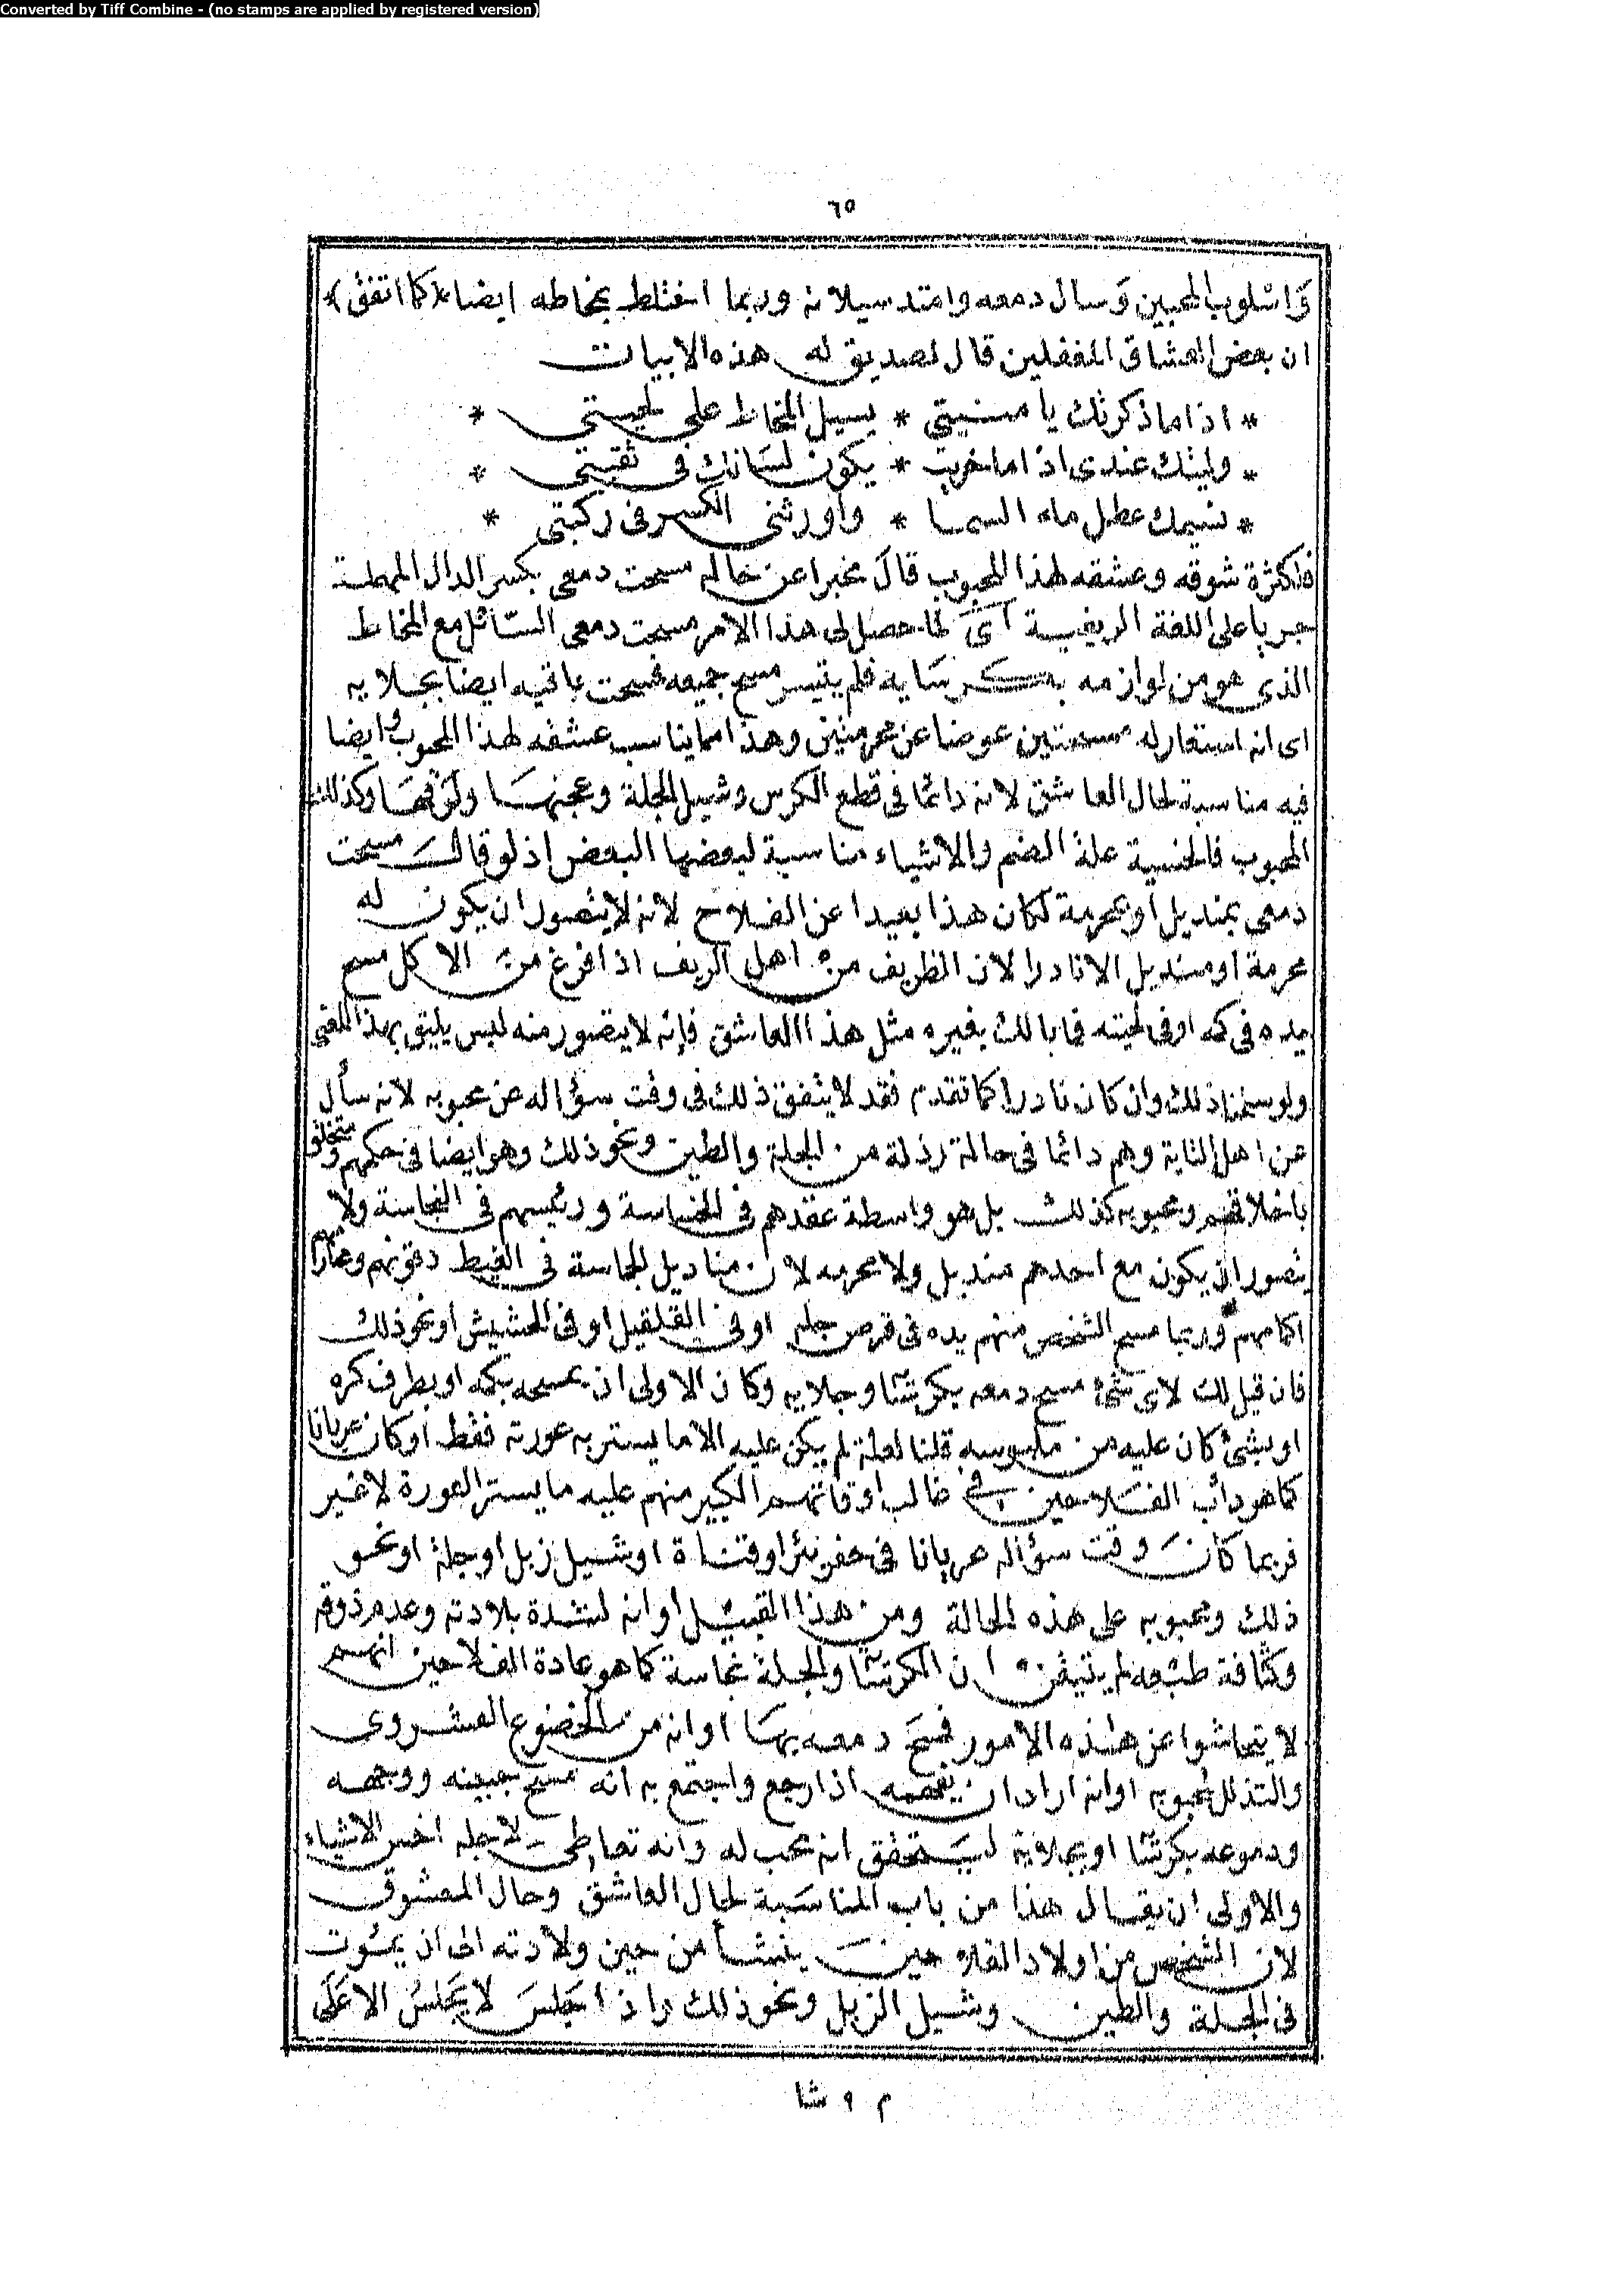 Converted by Tiff Combine - (no stamps are applied by registered version)
٦٥
واسلوب المحبين وسال دمعه وامتد سيلانه وربما اختلط بمخاطه ايضا (كما اتفق)
ان بعض العشاق المغفلين قال لصديق له هذه الابيات
* اذا ما ذكرتك يا منيتي * يسيل المخاط على لحيتي *
* وليتك عندى اذا ما خريت * يكون لسانك فى ثقبتى *
* نسيمك عطل ماء السما * واورثنى الكسر فى ركبتى *
فلكثرة شوقه وعشقه لهذا المحبوب قال مخبرا عن حاله مسحت دمعى بكسر الدال المهملة
جريا على اللغة الريفية أى لما حصل لى هذا الامر مسحت دمعى السائل مع المخاط
الذى هو من لوازمه بكرساية فلم يتيسر مسح جميعه فمسحت باقيه ايضا بجلايه
اى انه استعار له مسحتين عوضا عن محرمتين وهذا مما يناسب عشقه لهذا المحبوب وايضا
فيه مناسبة لحال العاشق لانه دائما فى قطع الكرس وشيل الجلة وعجنها ولزقها وكذلك
المحبوب فالجنسية علة الضم والاشياء مناسبة لبعضها البعض اذ لو قال مسحت
دمعى بمنديل او بمحرمة لكان هذا بعيدا عن الفلاح لانه لا يتصور ان يكون له
محرمة او منديل الا نادرا لان الظريف من اهل الريف اذا فرغ من الاكل مسح
يده فى كمه او فى لحيته فما بالك بغيره مثل هذا العاشق فإنه لا يتصور منه لبس يليق بهذا المعنى
ولو سلمنا ذلك وان كان نادرا كما تقدم فقد لا يتفق ذلك فى وقت سؤاله عن محبوبه لانه سأل
عن اهل التاية وهم دائما فى حالة رذلة من الجلة والطين ونحو ذلك وهو ايضا فى حكمهم ومتخلق
باخلاقهم ومحبوبه كذلك بل هو واسطة عقدهم فى الخساسة ورئيسهم فى النجاسة ولا
يتصور ان يكون مع احدهم منديل ولا محرمه لان مناديل الجاسة فى الغيط دقونهم ومحارمهم
اكمامهم وربما مسح الشخص منهم يده فى قرص جله او فى القلقيل او فى الحشيش او نحو ذلك
فان قيل لك لاى شئ مسح دمعه بكرشا وجلايه وكان الاولى ان يمسحه بكمه او بطرف كره
او بشئ كان عليه من ملبوسه قلنا لعله لم يكن عليه الا ما يستر به عورته فقط او كان عريانا
كما هو دأب الفلاحين فى غالب اوقاتهم الكبير منهم عليه ما يستر العورة لا غير
فربما كان وقت سؤاله عريانا فى حفر بئر او قناة او شيل زبل او جلة او نحو
ذلك ومحبوبه على هذه الحالة ومن هذا القبيل او انه لشدة بلادته وعدم ذوقه
وكثافة طبعه لم يتيقن ان الكرشا والجلة نجاسة كما هو عادة الفلاحين انهم
لا يتحاشوا عن هذه الامور فمسح دمعه بها او انه من الخضوع العشروى
والتذلل لمحبوبه او انه اراد ان يفحمه اذا رجع واجتمع به انه مسح جبينه ووجهه
ودموعه بكرشا او بجلاية ليتحقق انه محب له وانه تعاطى لاجله اخس الاشياء
والاولى ان يقال هذا من باب المناسبة لحال العاشق وحال المعشوق
لان الشخص من اولاد الفلاحين ينشأ من حين ولادته الى ان يموت
فى الجلة والطين وشيل الزبل ونحو ذلك واذا جلس لا يجلس الا على
م ٩ شا